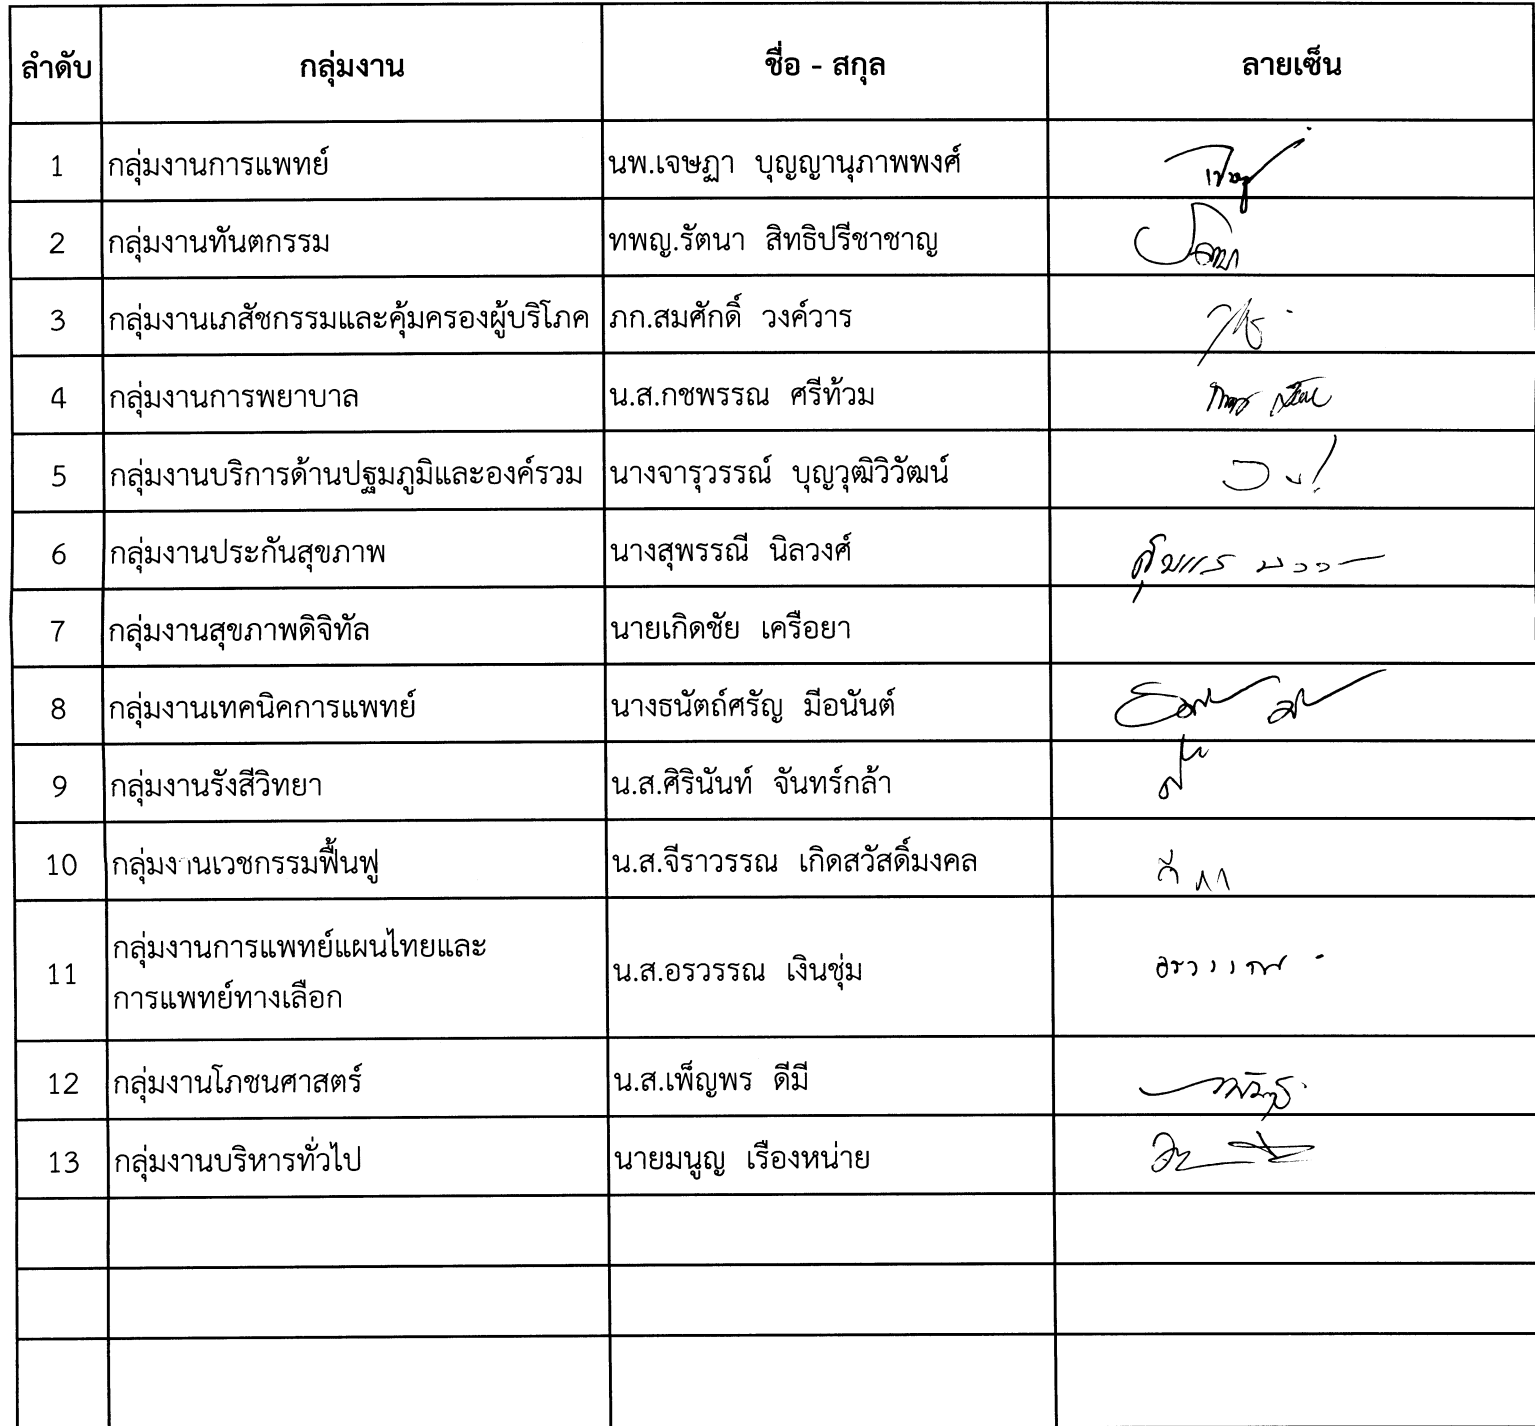 ลำดับ กลุ่มงาน ชื่อ - สกุล ลายเซ็น
1 กลุ่มงานการแพทย์ นพ.เจษฎา บุญญานุภาพพงศ์
2 กลุ่มงานทันตกรรม ทพญ.รัตนา สิทธิปรีชาชาญ
3 กลุ่มงานเภสัชกรรมและคุ้มครองผู้บริโภค ภก.สมศักดิ์ วงค์วาร
4 กลุ่มงานการพยาบาล น.ส.กชพรรณ ศรีท้วม
5 กลุ่มงานบริการด้านปฐมภูมิและองค์รวม นางจารุวรรณ์ บุญวุฒิวิวัฒน์
6 กลุ่มงานประกันสุขภาพ นางสุพรรณี นิลวงศ์
7 กลุ่มงานสุขภาพดิจิทัล นายเกิดชัย เครือยา
8 กลุ่มงานเทคนิคการแพทย์ นางธนัตถ์ศรัญ มีอนันต์
9 กลุ่มงานรังสีวิทยา น.ส.ศิรินันท์ จันทร์กล้า
10 กลุ่มงานเวชกรรมฟื้นฟู น.ส.จีราวรรณ เกิดสวัสดิ์มงคล
กลุ่มงานการแพทย์แผนไทยและ
11 น.ส.อรวรรณ เงินชุ่ม อรวรรณ
การแพทย์ทางเลือก
12 กลุ่มงานโภชนศาสตร์ น.ส.เพ็ญพร ดีมี
13 กลุ่มงานบริหารทั่วไป นายมนูญ เรืองหน่าย